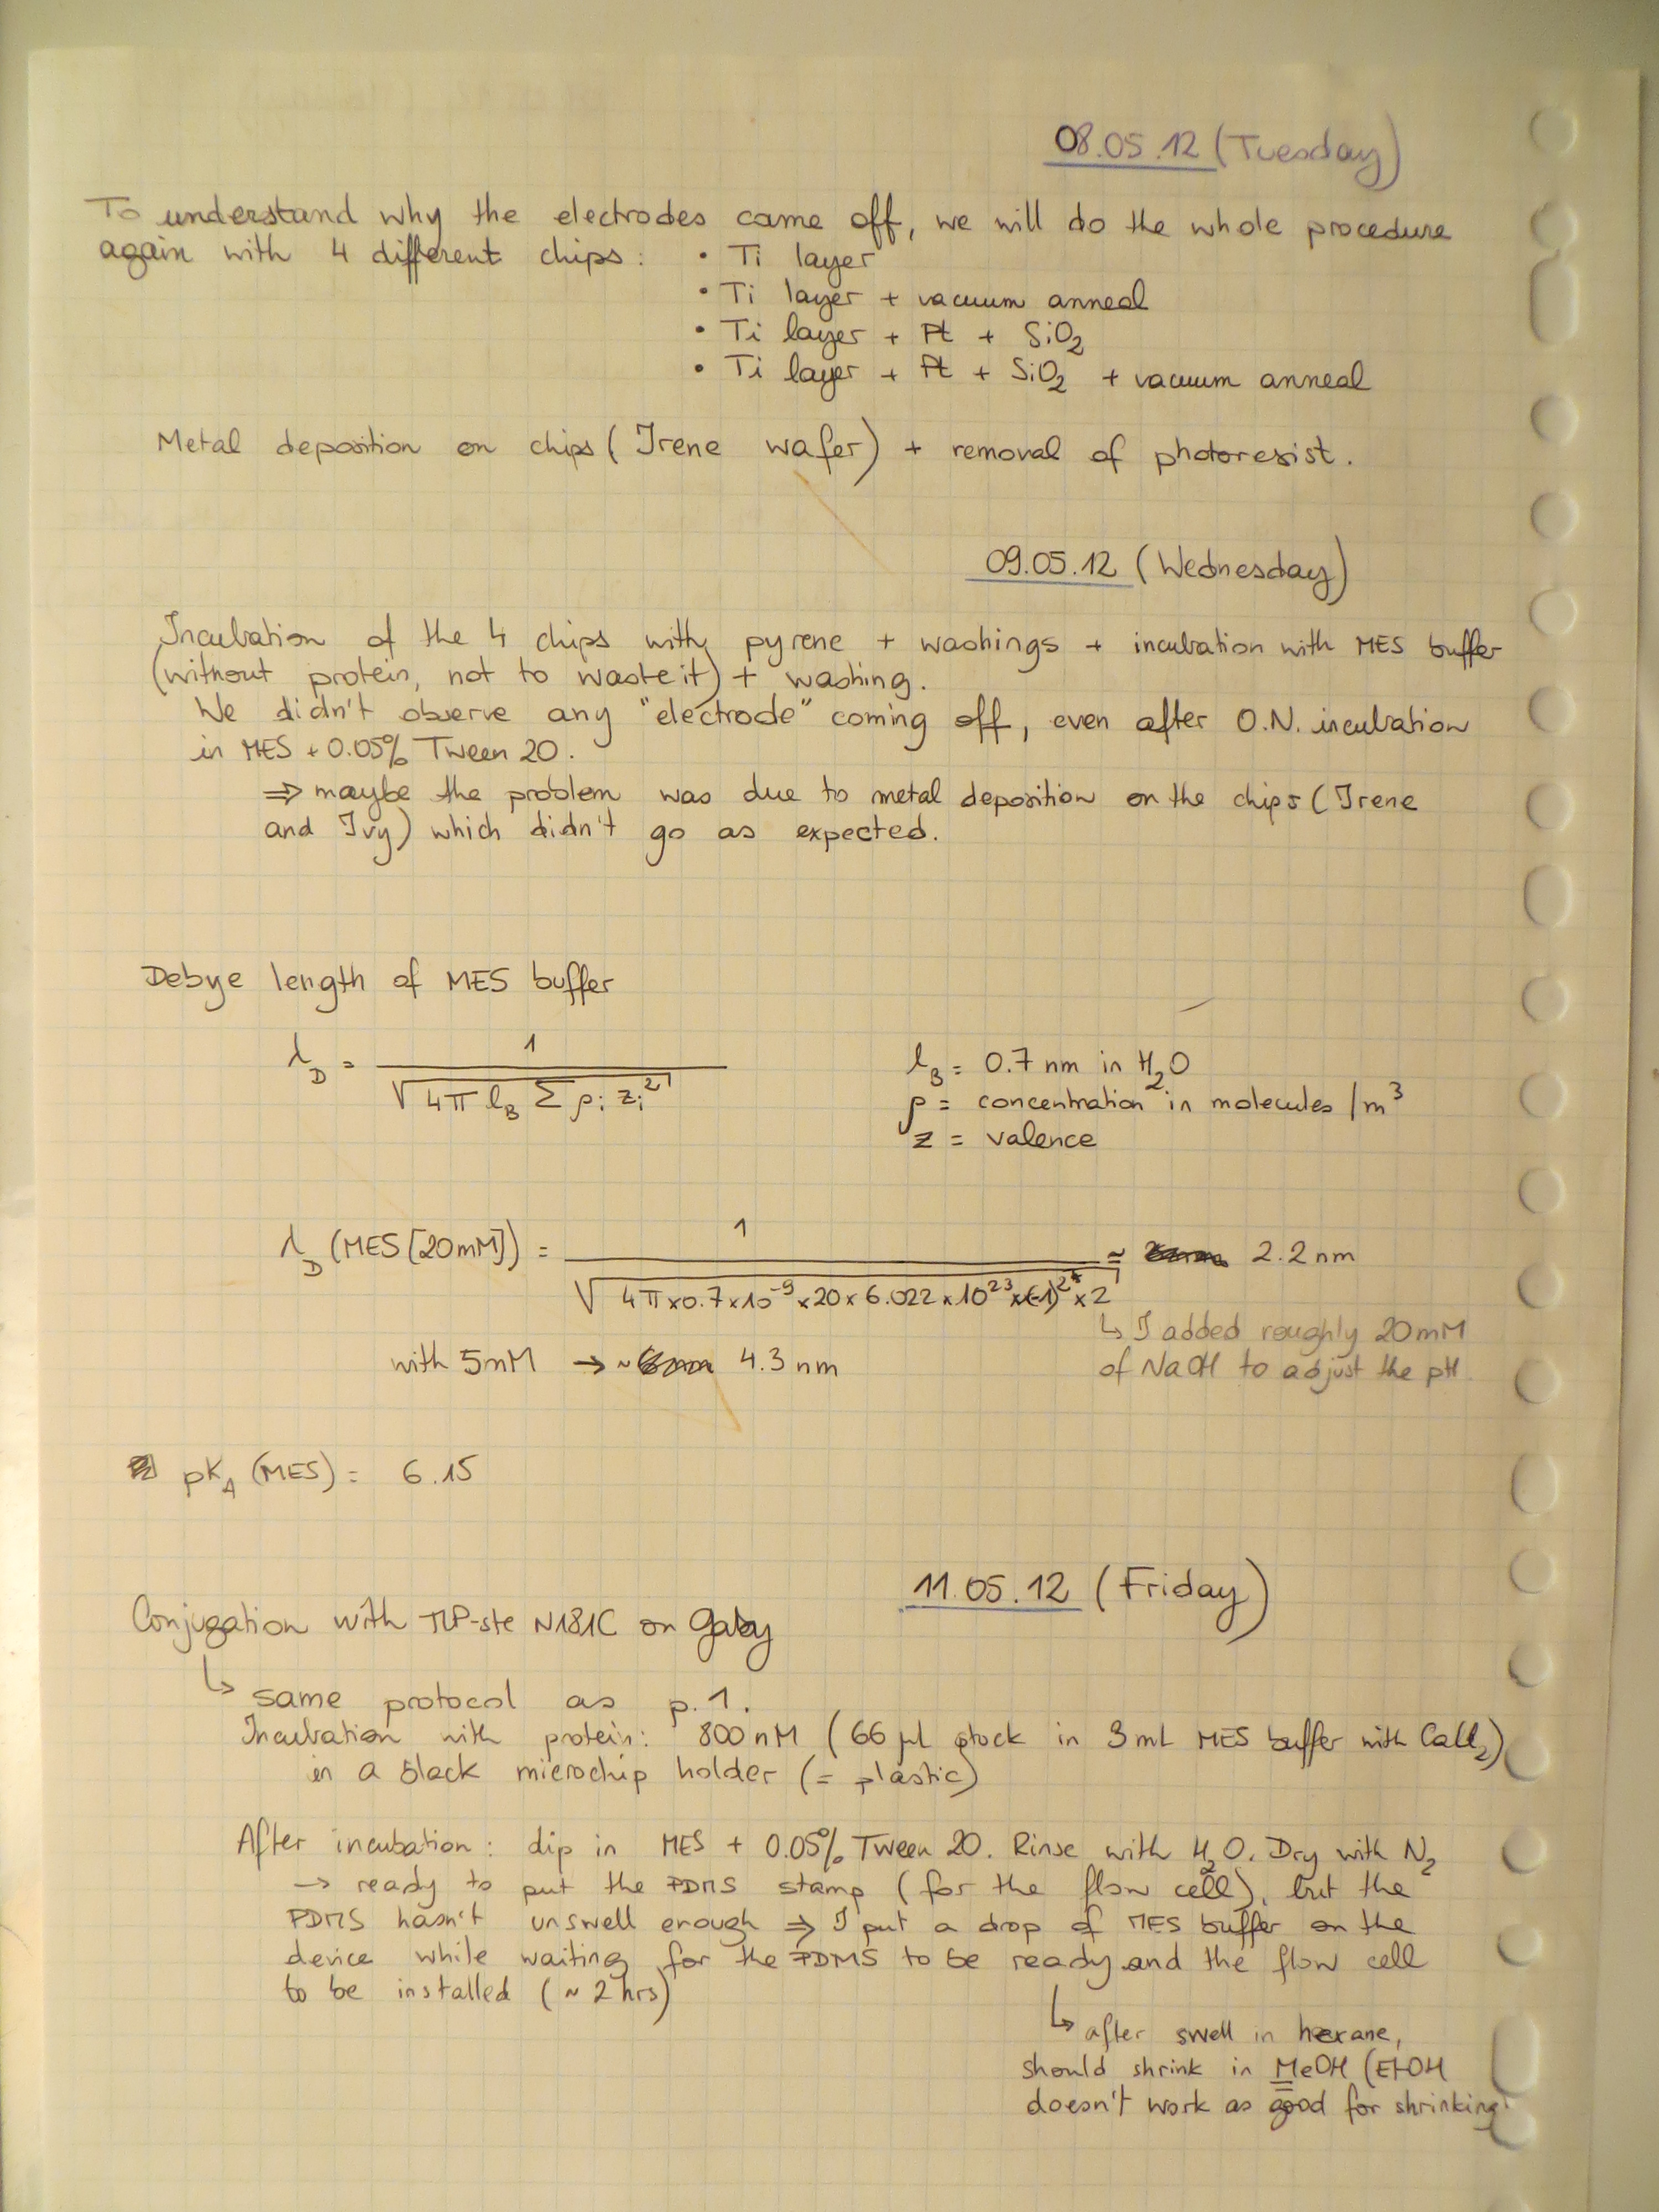 08.05.12 (Tuesday)
To understand why the electrodes came off, we will do the whole procedure
again with 4 different chips: • Ti layer
• Ti layer + vacuum anneal
• Ti layer + Pt + SiO2
• Ti layer + Pt + SiO2 + vacuum anneal
Metal deposition on chips (Irene wafer) + removal of photoresist.
09.05.12 (Wednesday)
Incubation of the 4 chips with pyrene + washings + incubation with MES buffer
(without protein, not to waste it) + washing.
We didn't observe any "electrode" coming off, even after O.N. incubation
in MES + 0.05% Tween 20.
⇒ maybe the problem was due to metal deposition on the chips (Irene
and Ivy) which didn't go as expected.
Debye length of MES buffer
λD = 1 / √(4π lB Σ ρi zi²)
lB = 0.7 nm in H2O
ρ = concentration in molecules /m³
z = valence
λD (MES [20mM]) = 1 / √(4π×0.7×10⁻⁹×20×6.022×10²³×(-1)²×2) ≈ 2.2 nm
↳ I added roughly 20mM
of NaOH to adjust the pH
with 5mM → ~ 4.3 nm
pKA (MES) = 6.15
11.05.12 (Friday)
Conjugation with TLP-ste N181C on Gaby
↳ same protocol as p.1.
Incubation with protein: 800nM (66 µl stock in 3mL MES buffer with CaCl2)
in a black microchip holder (= plastic)
After incubation: dip in MES + 0.05% Tween 20. Rinse with H2O. Dry with N2
→ ready to put the PDMS stamp (for the flow cell), but the
PDMS hasn't unswell enough ⇒ I put a drop of MES buffer on the
device while waiting for the PDMS to be ready and the flow cell
to be installed (~ 2 hrs)
↳ after swell in hexane,
should shrink in MeOH (EtOH
doesn't work as good for shrinking